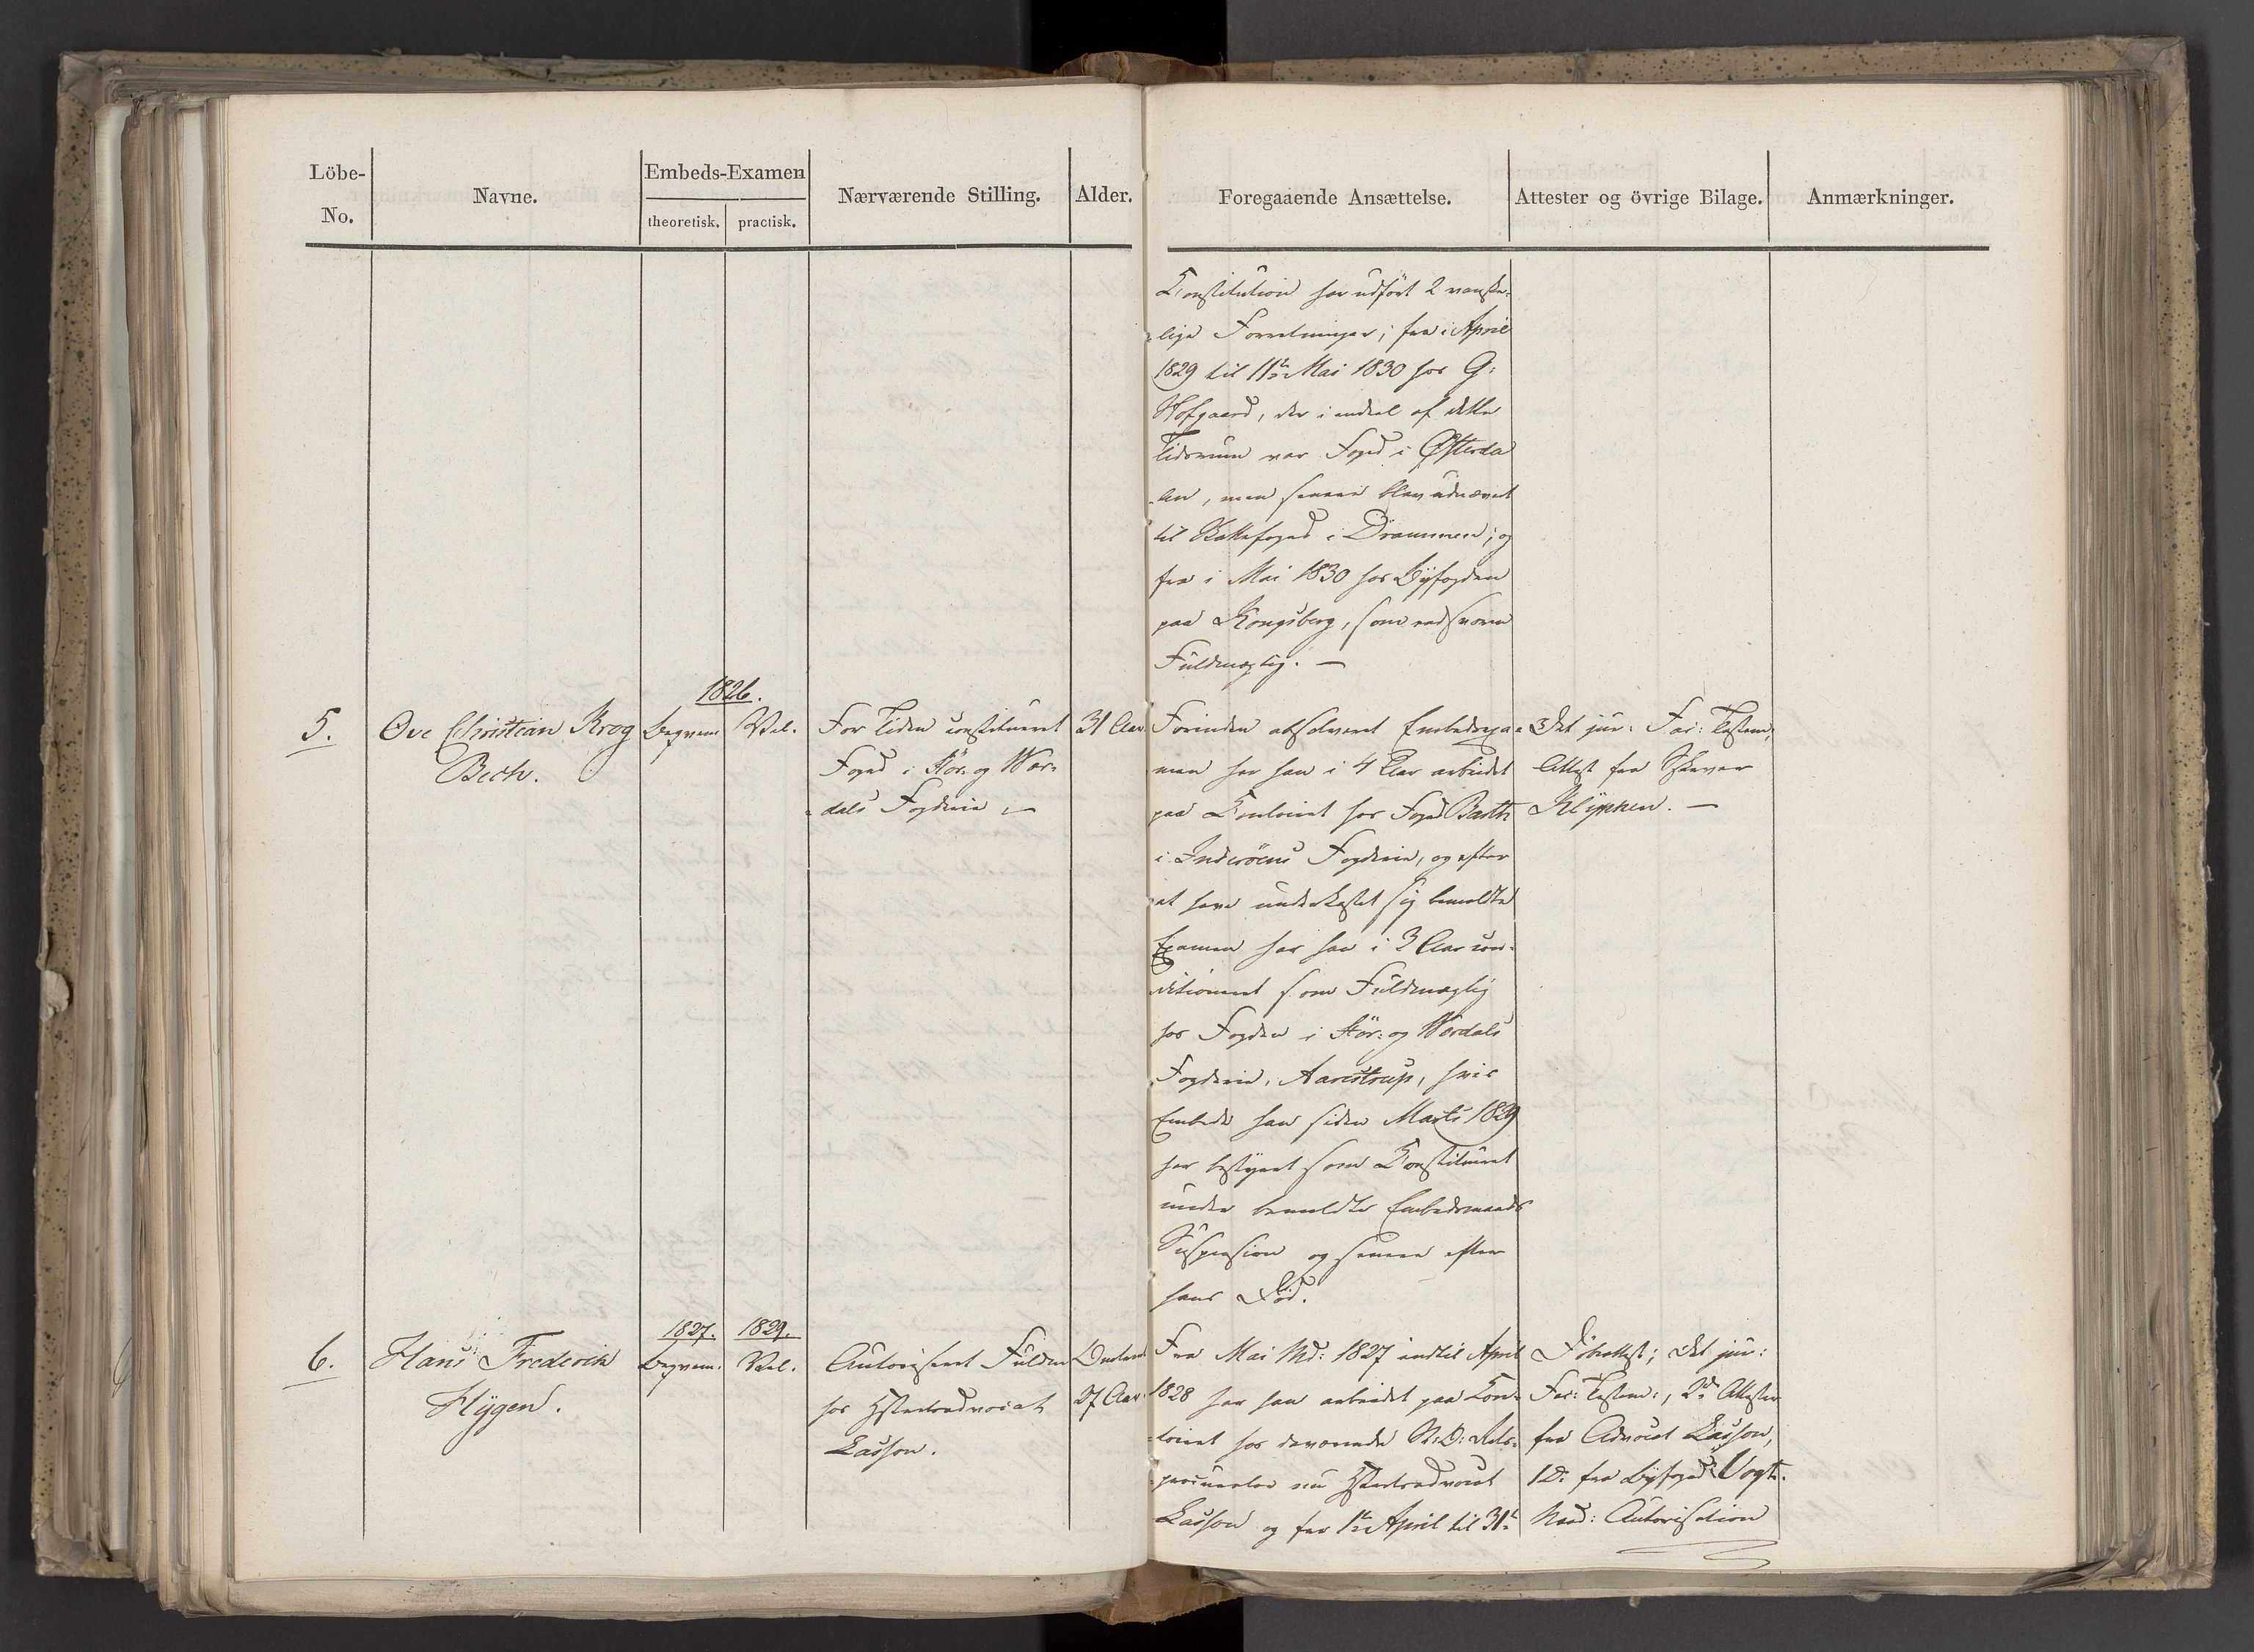 Löbe-
No.
Navne.
Embeds-Examen
theoretisk.
practisk.
Nærværende Stilling.
Alder.
Foregaaende Ansættelse.
Attester og övrige Bilage.
Anmærkninger.
Constitution har udført 2 vanske-
lige Forretninger; fra i April
1829 til 11te Mai 1830 hos G:
Hofgaard, der i endeel af dette
Tidsrum var Foged i Østerda
len, men senere blev udnævnt
til Rettefoged i Drammen; og
fra i Mai 1830 hos Byfogden
paa Kongsberg, som edsvoren
Fuldmægtig. —
5.
Ove Christian Krog
Bech.
1826.
Beqvem
Vel.
For Tiden constitueret
Foged i Stör- og Wær-
dals Fogderie. —
31 Aar
Forinden absolveret Embedsexa-
men har han i 4 Aar arbeidet
paa Contoiret hos Foged Barth
i Inderöens Fogderie, og efter
at have underkastet sig bemeldte
Examen har han i 3 Aar con-
ditioneret som Fuldmægtig
hos Fogden i Stör- og Werdals
Fogderie, Aarestrup, hvis
Embede han siden Marts 1829
har bestyret som Constitueret
under bemeldte Embedsmands
Suspension og senere efter
hans Död.
Det jur: Fac: Testem,
Attest fra
Klykken. —
6.
Hans Frederik
Hygen.
1827.
Beqvem.
1829.
Vel.
Autoriseret Fuldm
hos Hsteretsadvocat
Lasson.
27 Aar
Fra Mai Md: 1827 indtil April
1828 har han arbeidet paa Con-
toiret hos daværende
procurator nu Hsteretsadvocat
Lasson og fra 1te April til 31te
Döbeattest; Det jur:
Fac: Testem:, 2de Attester
fra Advocat Lasson,
1 D: fra Byfoged Vogt.
Autorisation